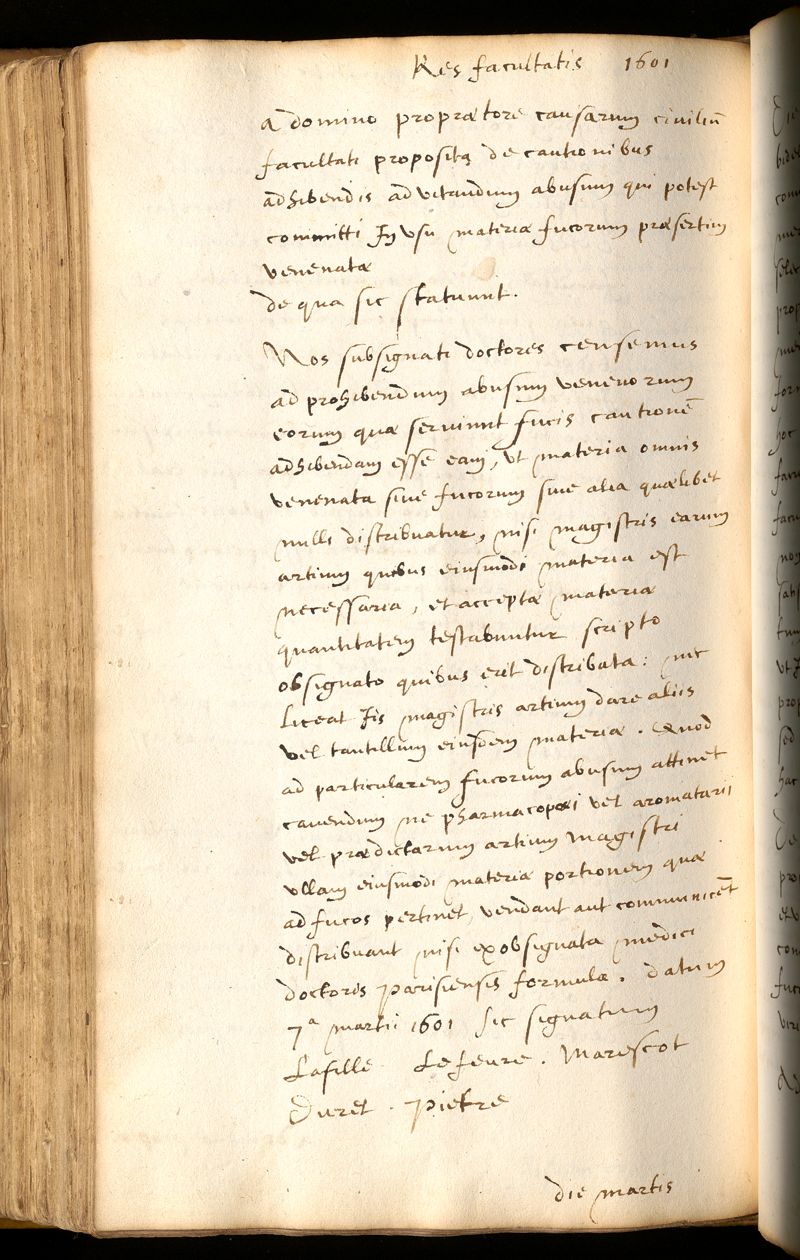 Res facultatis 1601
a domino propraetore causarum civiliū
facultati propositę de cautionibus
adhibendis ad vitandum abusum qui potest
committi In vsu materiae fucorum praesertim
venenatae
de qua sic statuunt.
Nos subsignati doctores censemus
ad prohibendum abusum venenorum
eorum quae seruiunt fucis cautionē
adhibendam esse eam, vt materia omnis
venenata siue fucorum siue alia quaelibet
nulli distribuatur, nisi magistris earum
artium quibus eiusmodi materia est
necessaria, et acceptae materiae
quantitatem testabuntur scripto
obsignato quibus erit distributa: nec
liceat Iis magistris artium dare aliis
vel tantillum eiusdem materiae. Quod
ad particularem fucorum abusum attinet
cauendum ne pharmacopoei vel aromatarii
vel praedictarum artium magistri
vllam eiusmodi materiae portionem quae
ad fucos pertinet, vendant aut communicēt
distribuant nisi ex obsignata medici
doctoris parisiensis formula. datum
7ª martii 1601 sic signatum
Lafille Lefeure. Marescot
Duret. Pietre
die martis